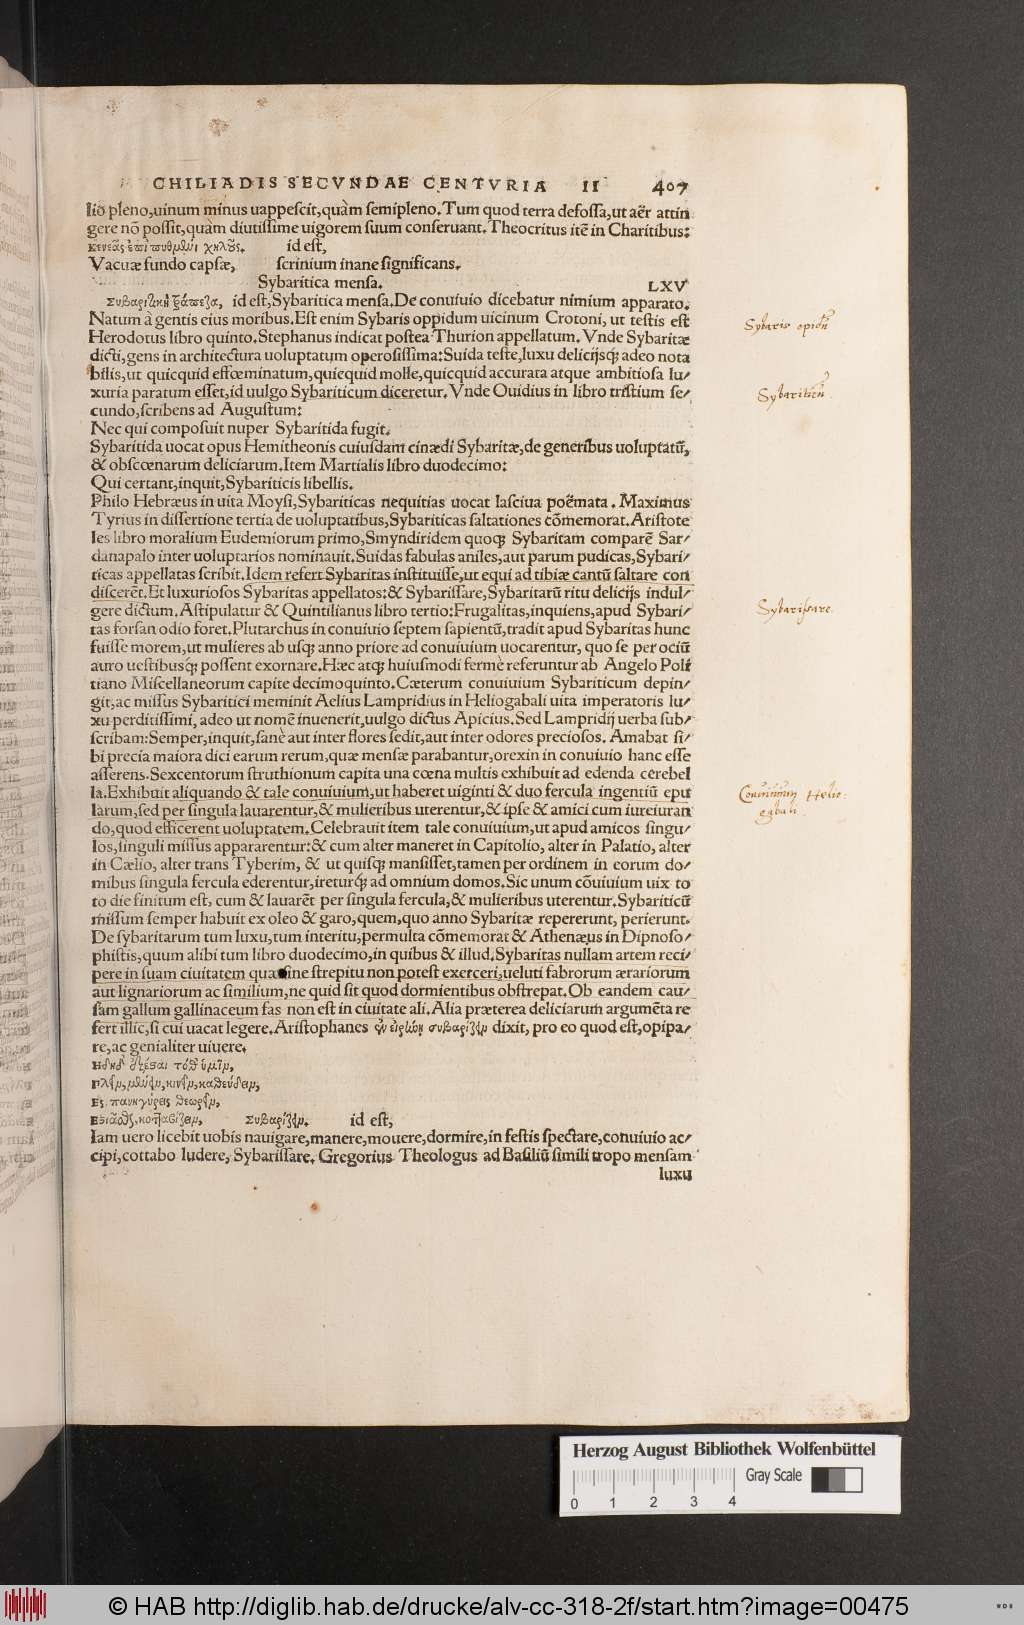 CHILIADIS SECVNDAE CENTVRIA II 407
lio pleno,uinum minus uappescit,quàm semipleno.Tum quod terra defossa,ut aër attin
gere nō possit,quàm diutissime uigorem suum conseruant.Theocritus itē in Charitibus:
κενεᾶς ἐπὶ πυθμένι χηλοῦς. id est,
Vacuæ fundo capsæ, scrinium inane significans.
Sybaritica mensa. LXV
Συβαριτικὴ τράπεζα, id est,Sybaritica mensa.De conuiuio dicebatur nimium apparato.
Natum à gentis eius moribus.Est enim Sybaris oppidum uicinum Crotoni, ut testis est
Herodotus libro quinto.Stephanus indicat postea Thurion appellatum. Vnde Sybaritæ
dicti,gens in architectura uoluptatum operosissima:Suida teste,luxu delicijsq; adeo nota
bilis,ut quicquid effœminatum,quicquid molle,quicquid accurata atque ambitiosa lu/
xuria paratum esset,id uulgo Sybariticum diceretur.Vnde Ouidius in libro tristium se/
cundo,scribens ad Augustum:
Nec qui composuit nuper Sybaritida fugit.
Sybaritida uocat opus Hemitheonis cuiusdam cinædi Sybaritæ,de generibus uoluptatū,
& obscœnarum deliciarum.Item Martialis libro duodecimo:
Qui certant,inquit,Sybariticis libellis.
Philo Hebræus in uita Moysi,Sybariticas nequitias uocat lasciua poëmata. Maximus
Tyrius in dissertione tertia de uoluptatibus,Sybariticas saltationes cōmemorat.Aristote
les libro moralium Eudemiorum primo,Smyndiridem quoq; Sybaritam comparē Sar/
danapalo inter uoluptarios nominauit.Suidas fabulas aniles,aut parum pudicas,Sybari/
ticas appellatas scribit.Idem refert Sybaritas instituisse,ut equi ad tibiæ cantū saltare con
discerēt.Et luxuriosos Sybaritas appellatos:& Sybarissare,Sybaritarū ritu delicijs indul/
gere dictum.Astipulatur & Quintilianus libro tertio:Frugalitas,inquiens,apud Sybari/
tas forsan odio foret.Plutarchus in conuiuio septem sapientū,tradit apud Sybaritas hunc
fuisse morem,ut mulieres ab usq; anno priore ad conuiuium uocarentur, quo se per ociū
auro uestibusq; possent exornare.Hæc atq; huiusmodi fermè referuntur ab Angelo Poli
tiano Miscellaneorum capite decimoquinto.Cæterum conuiuium Sybariticum depin/
git,ac missus Sybaritici meminit Aelius Lampridius in Heliogabali uita imperatoris lu/
xu perditissimi, adeo ut nomē inuenerit,uulgo dictus Apicius.Sed Lampridij uerba sub/
scribam:Semper,inquit,sanè aut inter flores sedit,aut inter odores preciosos. Amabat si/
bi precia maiora dici earum rerum,quæ mensæ parabantur,orexin in conuiuio hanc esse
asserens.Sexcentorum struthionum capita una cœna multis exhibuit ad edenda cerebel
la.Exhibuit aliquando & tale conuiuium,ut haberet uiginti & duo fercula ingentiū epu
larum,sed per singula lauarentur,& mulieribus uterentur,& ipse & amici cum iureiuran
do,quod efficerent uoluptatem.Celebrauit item tale conuiuium,ut apud amicos singu/
los,singuli missus appararentur:& cum alter maneret in Capitolio, alter in Palatio, alter
in Cælio, alter trans Tyberim, & ut quisq; mansisset,tamen per ordinem in eorum do/
mibus singula fercula ederentur,ireturq; ad omnium domos.Sic unum cōuiuium uix to
to die finitum est, cum & lauarēt per singula fercula,& mulieribus uterentur.Sybariticū
missum semper habuit ex oleo & garo,quem,quo anno Sybaritæ repererunt, perierunt.
De sybaritarum tum luxu,tum interitu,permulta cōmemorat & Athenæus in Dipnoso/
phistis,quum alibi tum libro duodecimo,in quibus & illud.Sybaritas nullam artem reci/
pere in suam ciuitatem quæ sine strepitu non potest exerceri,ueluti fabrorum ærariorum
aut lignariorum ac similium,ne quid sit quod dormientibus obstrepat.Ob eandem cau/
sam gallum gallinaceum fas non est in ciuitate ali.Alia præterea deliciarum argumēta re
fert illic,si cui uacat legere.Aristophanes ἐν εἰρήνῃ συβαρίζειν dixit, pro eo quod est,opipa/
re,ac genialiter uiuere.
Ἤδη δ' ἐξέσται τόθ' ὑμῖν,
Πλεῖν, μένειν, κινεῖν, καθεύδειν,
Ες πανηγύρεις θεωρεῖν,
Εστιᾶσθαι, κοτταβίζειν, Συβαρίζειν. id est,
Iam uero licebit uobis nauigare,manere,mouere,dormire,in festis spectare,conuiuio ac/
cipi,cottabo ludere, Sybarissare. Gregorius Theologus ad Basiliū simili tropo mensam
luxu
Sybaris opidū
Sybariticū.
Sybarissare.
Conuiuium Helio:
gabali.
Herzog August Bibliothek Wolfenbüttel
Gray Scale
0 1 2 3 4
© HAB http://diglib.hab.de/drucke/alv-cc-318-2f/start.htm?image=00475